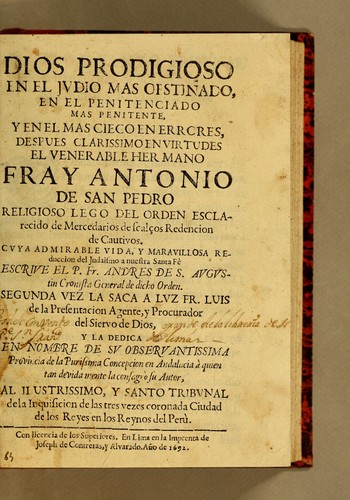 DIOS PRODIGIOSO
EN EL JVDIO MAS OFSTINADO,
EN EL PENITENCIADO
MAS PENITENTE,
Y EN EL MAS CIECO EN ERRCRES,
DESPUES CLARISSIMO EN VIRTUDES
EL VENERABLE HERMANO
FRAY ANTONIO
DE SAN PEDRO
RELIGIOSO LEGO DEL ORDEN ESCLA-
recido de Mercedarios descalços Redencion
de Cautivos,
CVYA ADMIRABLE VIDA, Y MARAVILLOSA RE-
duccion del Judaismo a nuestra Santa Fè
ESCRIVE EL P. Fr. ANDRES DE S. AVGVS-
tin Cronista General de dicho Orden.
SEGUNDA VEZ LA SACA A LVZ FR. LUIS
de la Presentacion Agente, y Procurador
del Siervo de Dios,
Y LA DEDICA
EN NOMBRE DE SV OBSERVANTISSIMA
Provincia de la Purissima Concepcion en Andalucia à quien
tan devidamente la consagro su Autor,
AL II USTRISSIMO, Y SANTO TRIBVNAL
de la Inquisicion de las tres vezes coronada Ciudad
de los Reyes en los Reynos del Perù.
Con licencia de los Superiores. En Lima en la Imprenta de
Joseph de Contreras, y Alvarado. Año de 1692.